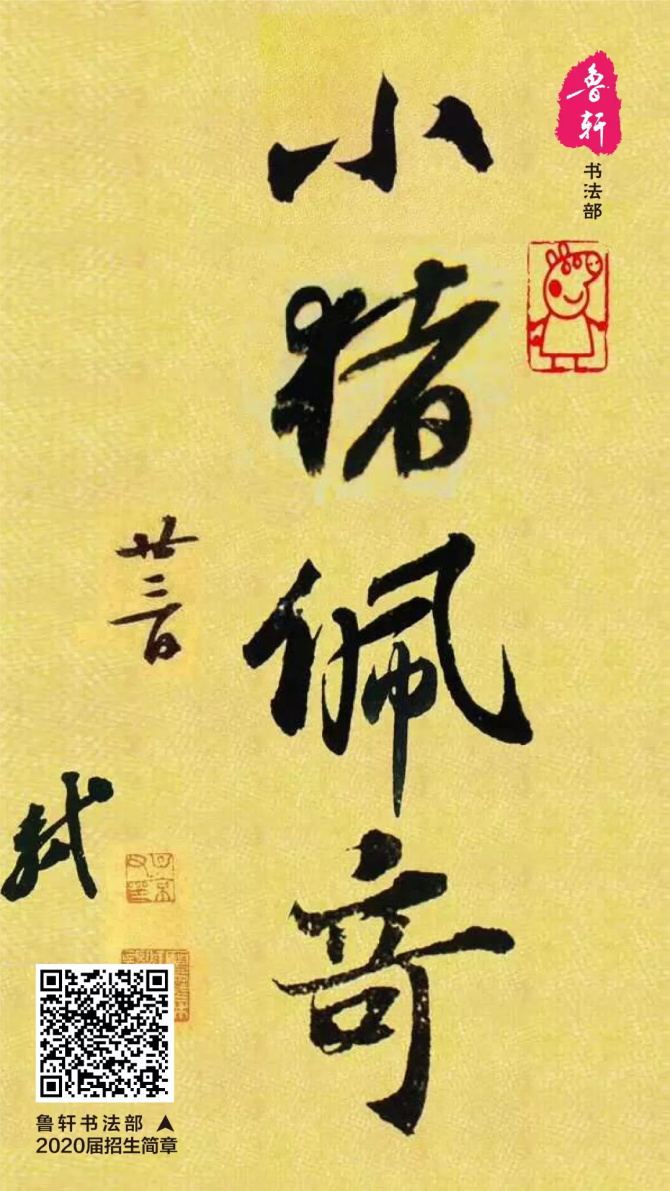 鲁轩
书法部
小猪佩奇
廿二日
轼
鲁轩书法部
2020届招生简章